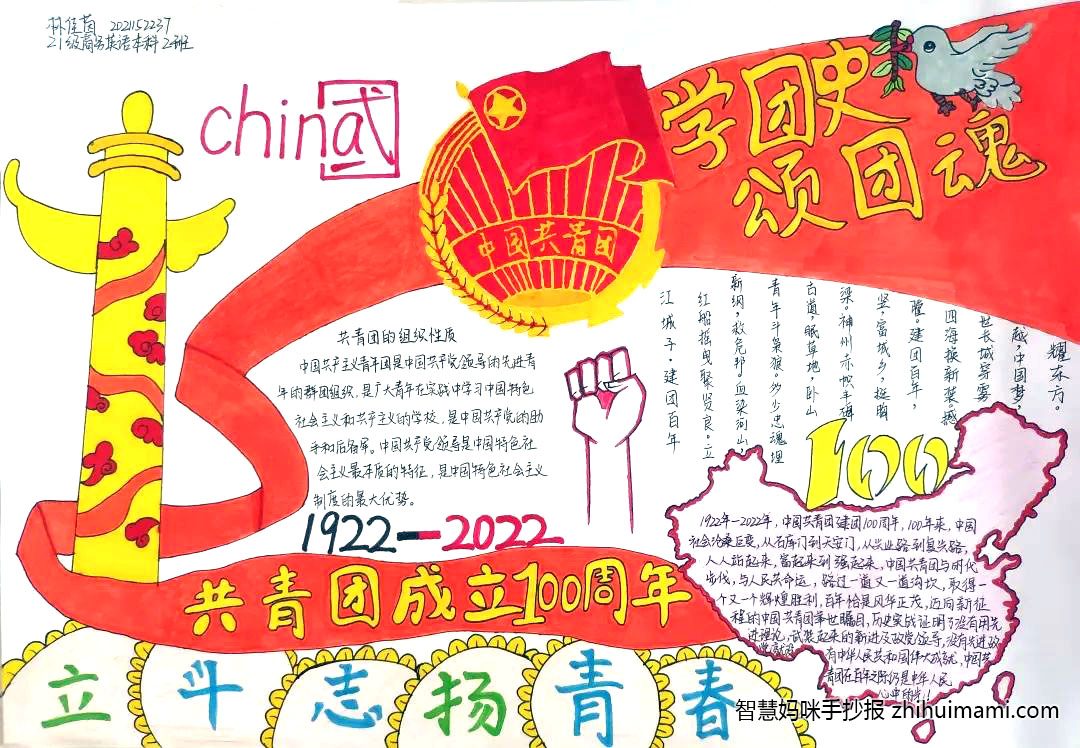 林佳茵 202152237
21级商务英语本科2班
china式
学团史
颂团魂
中国共青团
共青团的组织性质
中国共产主义青年团是中国共产党领导的先进青
年的群团组织,是广大青年在实践中学习中国特色
社会主义和共产主义的学校,是中国共产党的助
手和后备军。中国共产党领导是中国特色社
会主义最本质的特征,是中国特色社会主义
制度的最大优势。
江城子·建团百年
红船摇曳聚贤良。立
新纲,救危邦。血染河山,
青年斗枭狼。多少忠魂埋
古道,眠草地,卧山
梁。神州赤帜半海
坚,富城乡,挺胸
膛。建团百年,
四海换新装。撼
世长城穿雾
越,中国梦,
耀东方。
100
1922年-2022年,中国共青团建团100周年,100年来,中国
社会沧桑巨变,从石库门到天安门,从兴业路到复兴路,
人人站起来,富起来到强起来,中国共青团与时代
步伐,与人民共命运,路过一道又一道沟坎,取得一
个又一个辉煌胜利,百年恰是风华正茂,迈向新征
程的中国共青团举世瞩目,历史实践证明了没有用先
进理论,武装起来的新进政党领导,没有先进政
有中华人民共和国伟大成就,中国共
青团在百年之际仍是中华人民
心中的
1922-2022
共青团成立100周年
立斗志扬青春
智慧妈咪手抄报 zhihuimami.com